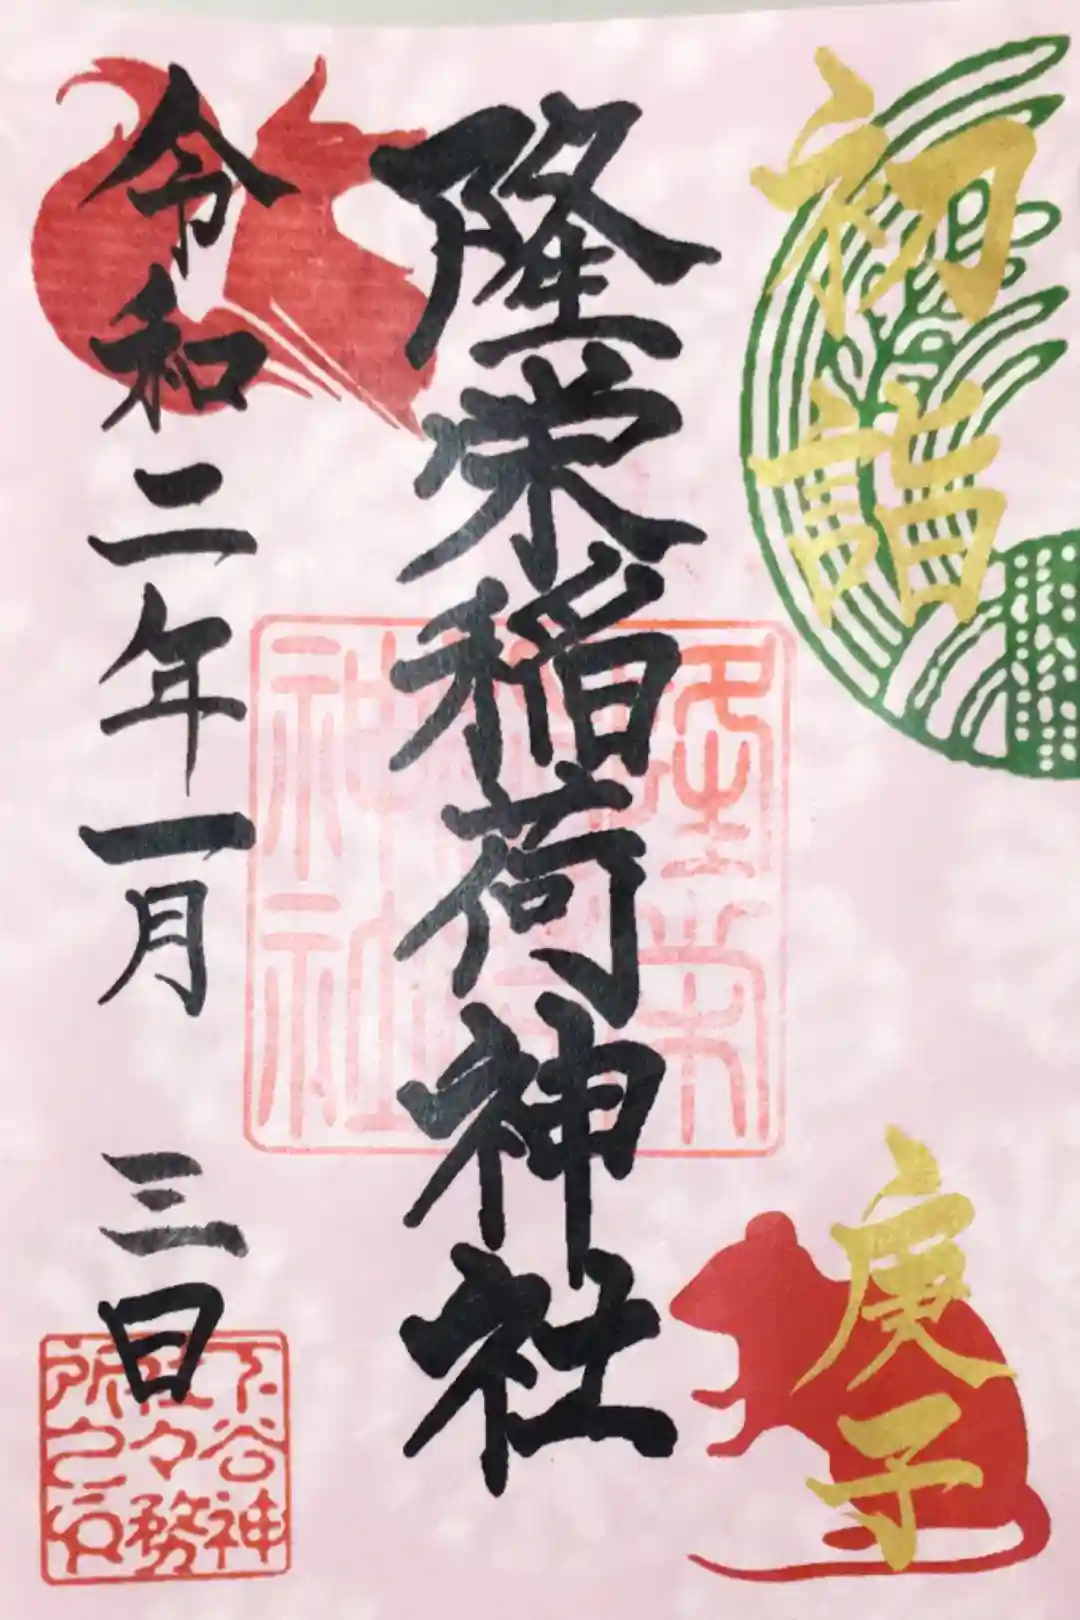 初詣
庚子
隆栄稲荷神社
令和二年一月 三日
隆栄
神社
下谷神
社々務
所之印